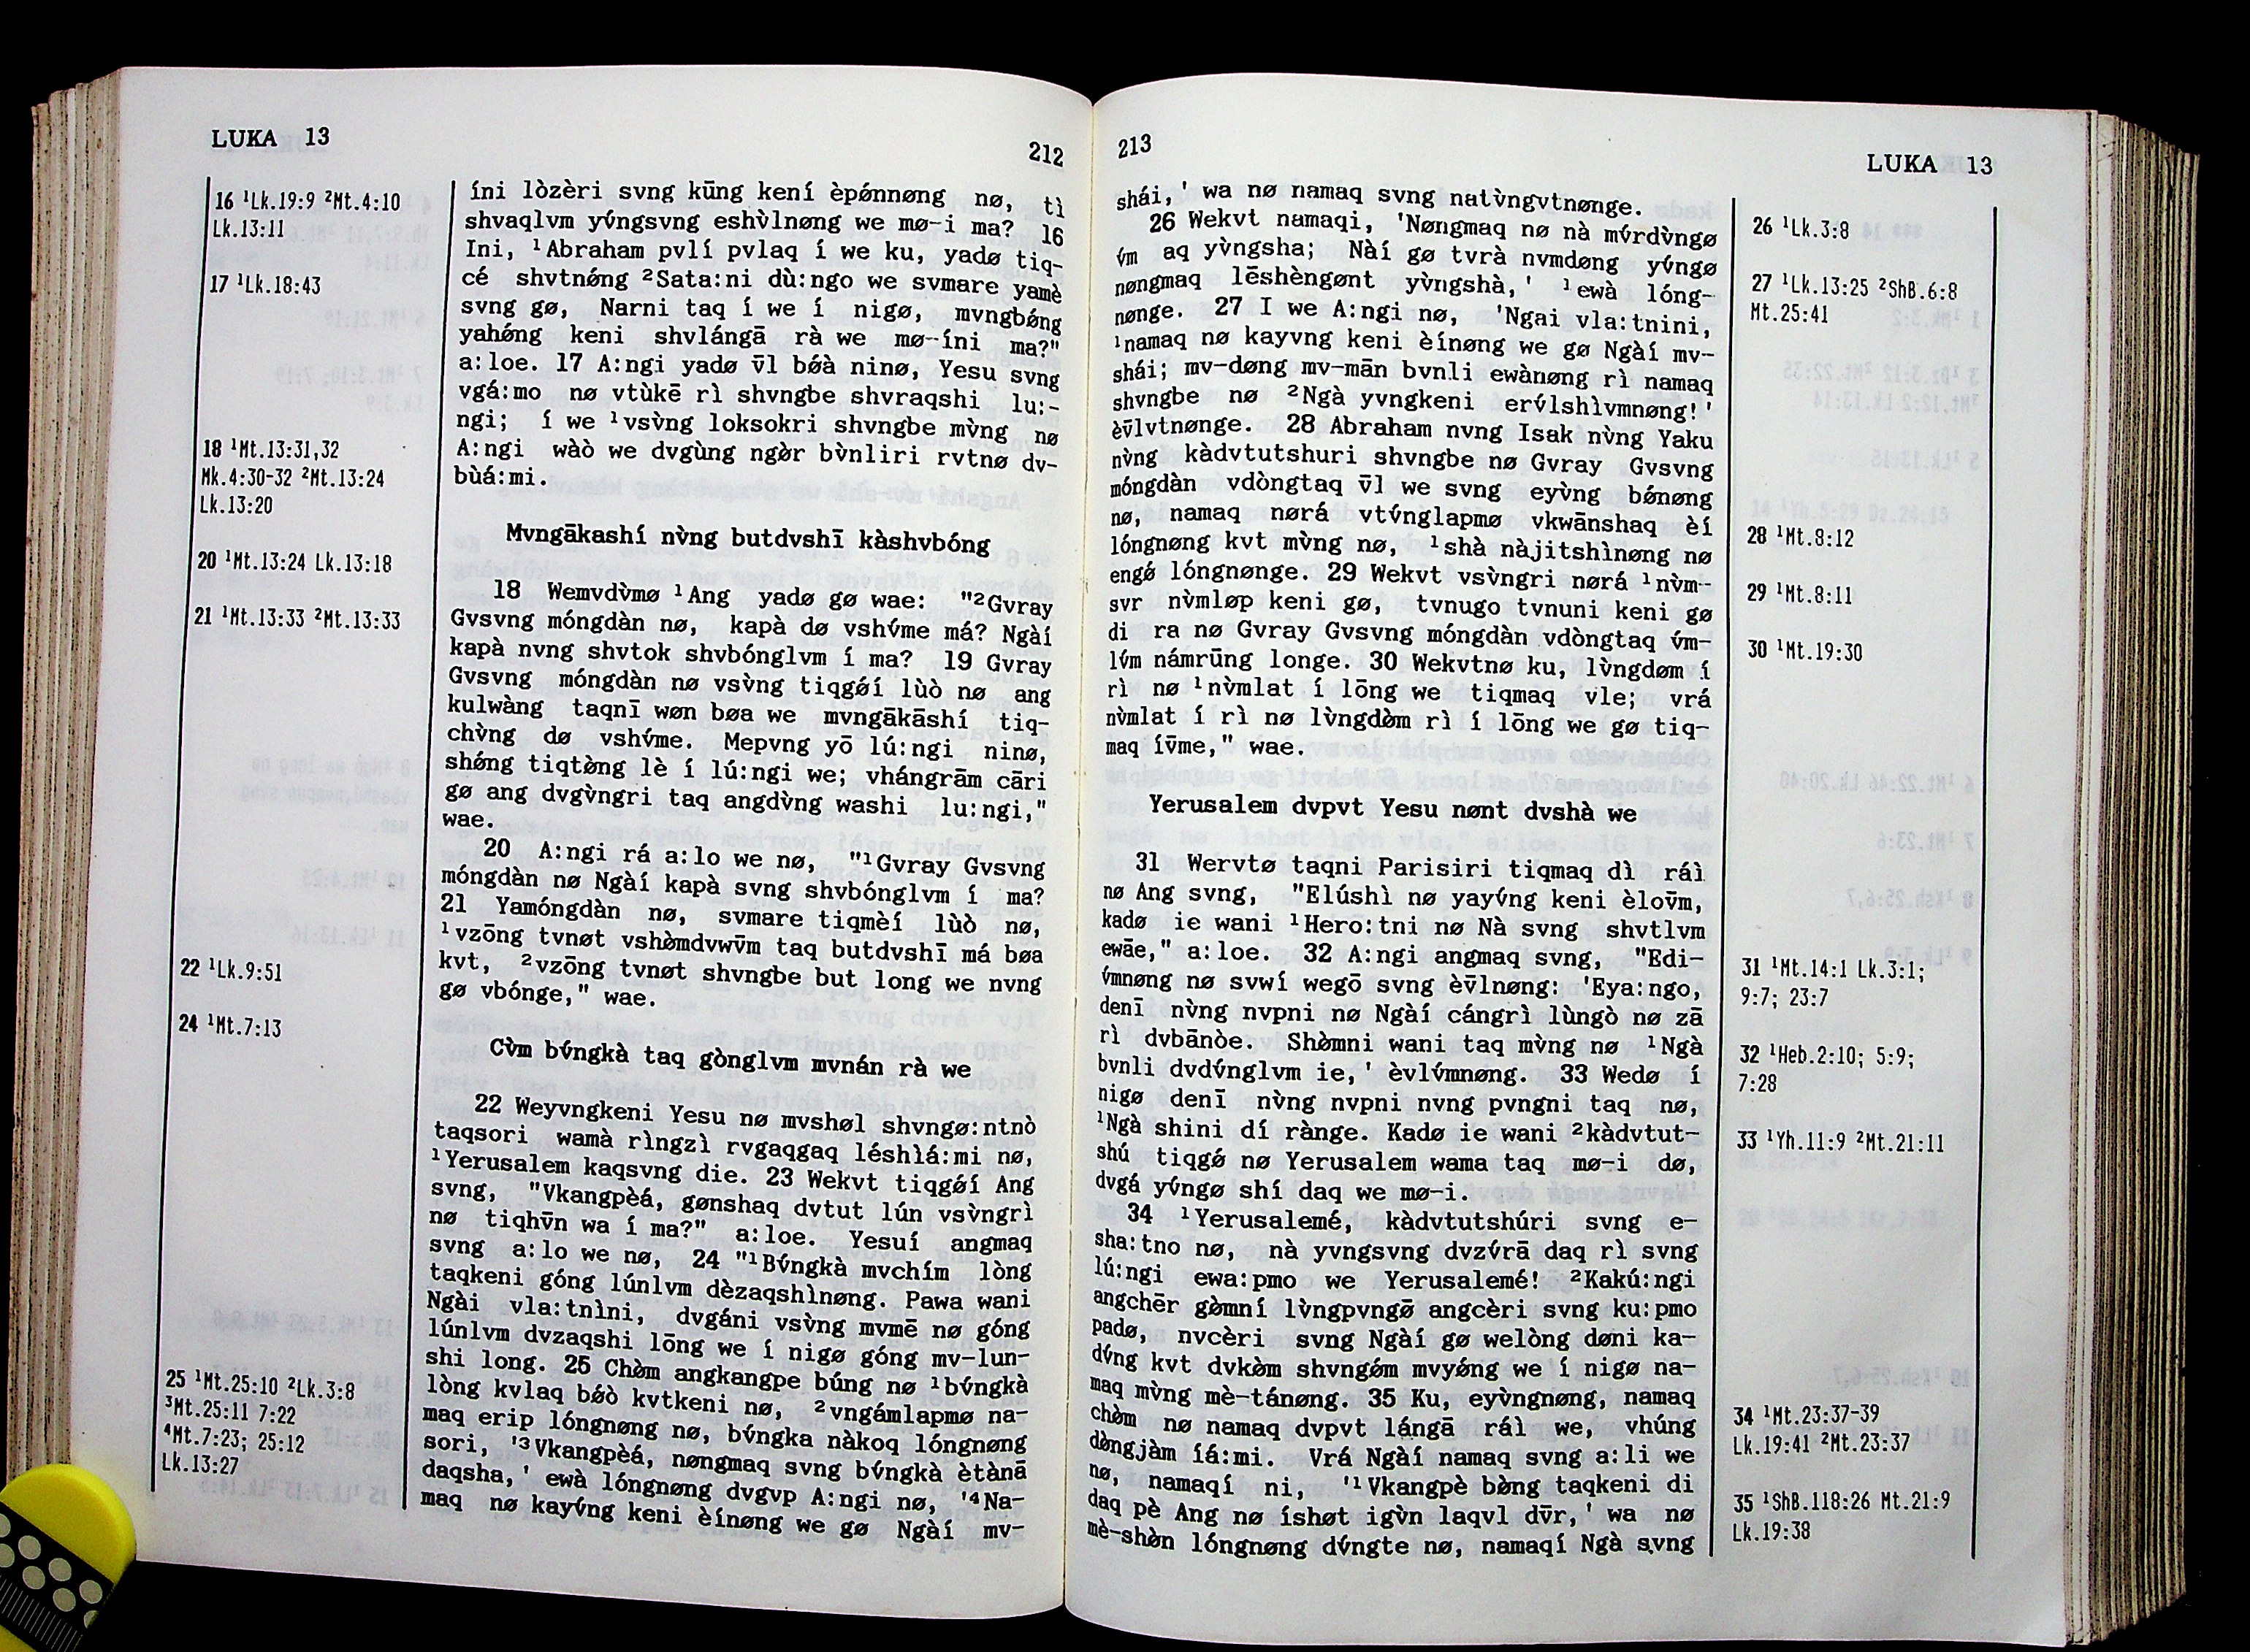 LUKA 13
212
16 ¹Lk.19:9 ²Mt.4:10
Lk.13:11
17 ¹Lk.18:43
18 ¹Mt.13:31,32
Mk.4:30-32 ²Mt.13:24
Lk.13:20
20 ¹Mt.13:24 Lk.13:18
21 ¹Mt.13:33 ²Mt.13:33
22 ¹Lk.9:51
24 ¹Mt.7:13
25 ¹Mt.25:10 ²Lk.3:8
³Mt.25:11 7:22
⁴Mt.7:23; 25:12
Lk.13:27
íni lòzèri svng kūng kení èpǿnnøng nø, tì
shvaqlvm yv́ngsvng eshv̀lnøng we mø-i ma? 16
Ini, ¹Abraham pvlí pvlaq í we ku, yadø tiq-
cé shvtnǿng ²Sata:ni dù:ngo we svmare yamè
svng gø, Narni taq í we í nigø, mvngbǿng
yahǿng keni shvlángā rà we mø-íni ma?"
a:loe. 17 A:ngi yadø v̄l bǿà ninø, Yesu svng
vgá:mo nø vtùkē rì shvngbe shvraqshi lu:-
ngi; í we ¹vsv̀ng loksokri shvngbe mv̀ng nø
A:ngi wàò we dvgùng ngø̀r bv̀nliri rvtnø dv-
bùá:mi.
Mvngākashí nv̀ng butdvshī kàshvbóng
18 Wemvdv̀mø ¹Ang yadø gø wae: "²Gvray
Gvsvng móngdàn nø, kapà dø vshv́me má? Ngàí
kapà nvng shvtok shvbónglvm í ma? 19 Gvray
Gvsvng móngdàn nø vsv̀ng tiqgǿí lùò nø ang
kulwàng taqnī wøn bøa we mvngākāshí tiq-
chv̀ng dø vshv́me. Mepvng yō lú:ngi ninø,
shǿng tiqtø̀ng lè í lú:ngi we; vhángrām cāri
gø ang dvgv̀ngri taq angdv̀ng washi lu:ngi,"
wae.
20 A:ngi rá a:lo we nø, "¹Gvray Gvsvng
móngdàn nø Ngàí kapà svng shvbónglvm í ma?
21 Yamóngdàn nø, svmare tiqmèí lùò nø,
¹vzōng tvnøt vshø̀mdvwv̄m taq butdvshī má bøa
kvt, ²vzōng tvnøt shvngbe but long we nvng
gø vbónge," wae.
Cv̀m bv́ngkà taq gònglvm mvnán rà we
22 Weyvngkeni Yesu nø mvshøl shvngø:ntnò
taqsori wamà rìngzì rvgaqgaq léshìá:mi nø,
¹Yerusalem kaqsvng die. 23 Wekvt tiqgǿí Ang
svng, "Vkangpèá, gønshaq dvtut lún vsv̀ngrì
nø tiqhv̄n wa í ma?" a:loe. Yesuí angmaq
svng a:lo we nø, 24 "¹Bv́ngkà mvchím lòng
taqkeni góng lúnlvm dèzaqshìnøng. Pawa wani
Ngài vla:tnìni, dvgáni vsv̀ng mvmē nø góng
lúnlvm dvzaqshi lōng we í nigø góng mv-lun-
shi long. 25 Chø̀m angkangpe búng nø ¹bv́ngkà
lòng kvlaq bǿò kvtkeni nø, ²vngámlapmø na-
maq erip lóngnøng nø, bv́ngka nàkoq lóngnøng
sori, '³Vkangpèá, nøngmaq svng bv́ngkà ètànā
daqsha,' ewà lóngnøng dvgvp A:ngi nø, '⁴Na-
maq nø kayv́ng keni èínøng we gø Ngàí mv-
213
LUKA 13
shái,' wa nø namaq svng natv̀ngvtnønge.
26 Wekvt namaqi, 'Nøngmaq nø nà mv́rdv̀ngø
v́m aq yv̀ngsha; Nàí gø tvrà nvmdøng yv́ngø
nøngmaq lēshèngønt yv̀ngshà,' ¹ewà lóng-
nønge. 27 I we A:ngi nø, 'Ngai vla:tnini,
¹namaq nø kayvng keni èínøng we gø Ngàí mv-
shái; mv-døng mv-mān bvnli ewànøng rì namaq
shvngbe nø ²Ngà yvngkeni erv́lshìvmnøng!'
èv̄lvtnønge. 28 Abraham nvng Isak nv̀ng Yaku
nv̀ng kàdvtutshuri shvngbe nø Gvray Gvsvng
móngdàn vdòngtaq v̄l we svng eyv̀ng bǿnøng
nø, namaq nørá vtv́nglapmø vkwānshaq èí
lóngnøng kvt mv̀ng nø, ¹shà nàjitshìnøng nø
engǿ lóngnønge. 29 Wekvt vsv̀ngri nørá ¹nv̀m-
svr nv̀mløp keni gø, tvnugo tvnuni keni gø
di ra nø Gvray Gvsvng móngdàn vdòngtaq v́m-
lv́m námrūng longe. 30 Wekvtnø ku, lv̀ngdøm í
rì nø ¹nv̀mlat í lōng we tiqmaq vle; vrá
nv̀mlat í rì nø lv̀ngdø̀m rì í lōng we gø tiq-
maq ív̄me," wae.
Yerusalem dvpvt Yesu nønt dvshà we
31 Wervtø taqni Parisiri tiqmaq dì ráì
nø Ang svng, "Elúshì nø yayv́ng keni èlov̄m,
kadø ie wani ¹Hero:tni nø Nà svng shvtlvm
ewāe," a:loe. 32 A:ngi angmaq svng, "Edi-
v́mnøng nø svwí wegō svng èv̄lnøng: 'Eya:ngo,
denī nv̀ng nvpni nø Ngàí cángrì lùngò nø zā
rì dvbānòe. Shø̀mni wani taq mv̀ng nø ¹Ngà
bvnli dvdv́nglvm ie,' èvlv́mnøng. 33 Wedø í
nigø denī nv̀ng nvpni nvng pvngni taq nø,
¹Ngà shini dí rànge. Kadø ie wani ²kàdvtut-
shú tiqgǿ nø Yerusalem wama taq mø-i dø,
dvgá yv́ngø shí daq we mø-i.
34 ¹Yerusalemé, kàdvtutshúri svng e-
sha:tno nø, nà yvngsvng dvzv́rā daq rì svng
lú:ngi ewa:pmo we Yerusalemé! ²Kakú:ngi
angchēr gø̀mní lv̀ngpvngø̄ angcèri svng ku:pmo
padø, nvcèri svng Ngàí gø welòng døni ka-
dv́ng kvt dvkø̀m shvngǿm mvyǿng we í nigø na-
maq mv̀ng mè-tánøng. 35 Ku, eyv̀ngnøng, namaq
chø̀m nø namaq dvpvt lángā ráì we, vhúng
dø̀ngjàm íá:mi. Vrá Ngàí namaq svng a:li we
nø, namaqí ni, '¹Vkangpè bø̀ng taqkeni di
daq pè Ang nø íshøt igv̀n laqvl dv̄r,' wa nø
mè-shø̀n lóngnøng dv́ngte nø, namaqí Ngà svng
26 ¹Lk.3:8
27 ¹Lk.13:25 ²ShB.6:8
Mt.25:41
28 ¹Mt.8:12
29 ¹Mt.8:11
30 ¹Mt.19:30
31 ¹Mt.14:1 Lk.3:1;
9:7; 23:7
32 ¹Heb.2:10; 5:9;
7:28
33 ¹Yh.11:9 ²Mt.21:11
34 ¹Mt.23:37-39
Lk.19:41 ²Mt.23:37
35 ¹ShB.118:26 Mt.21:9
Lk.19:38